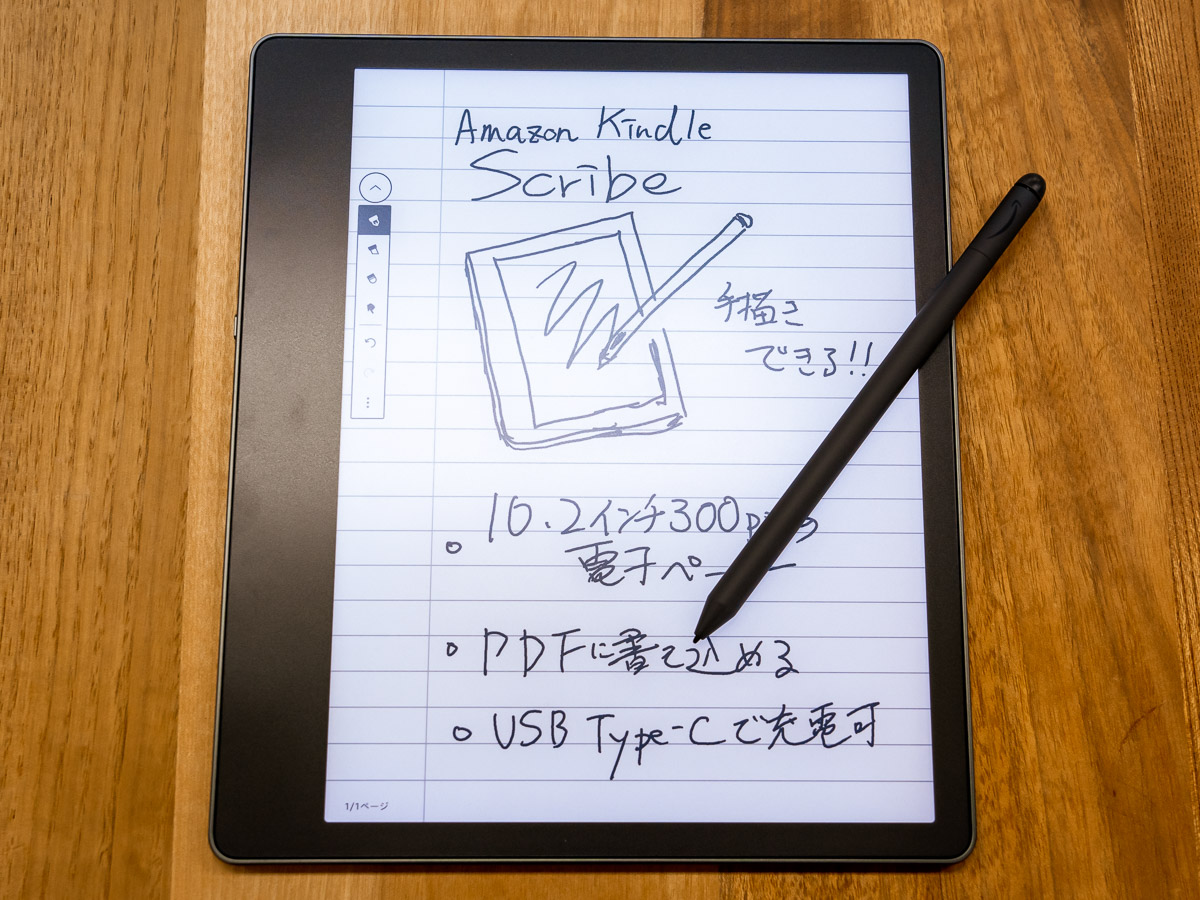 Amazon Kindle
Scribe
手描き
できる!!
10.2インチ300
電子ペ
PDFに書き込める
USB Type-Cで充電可
1/1ページ